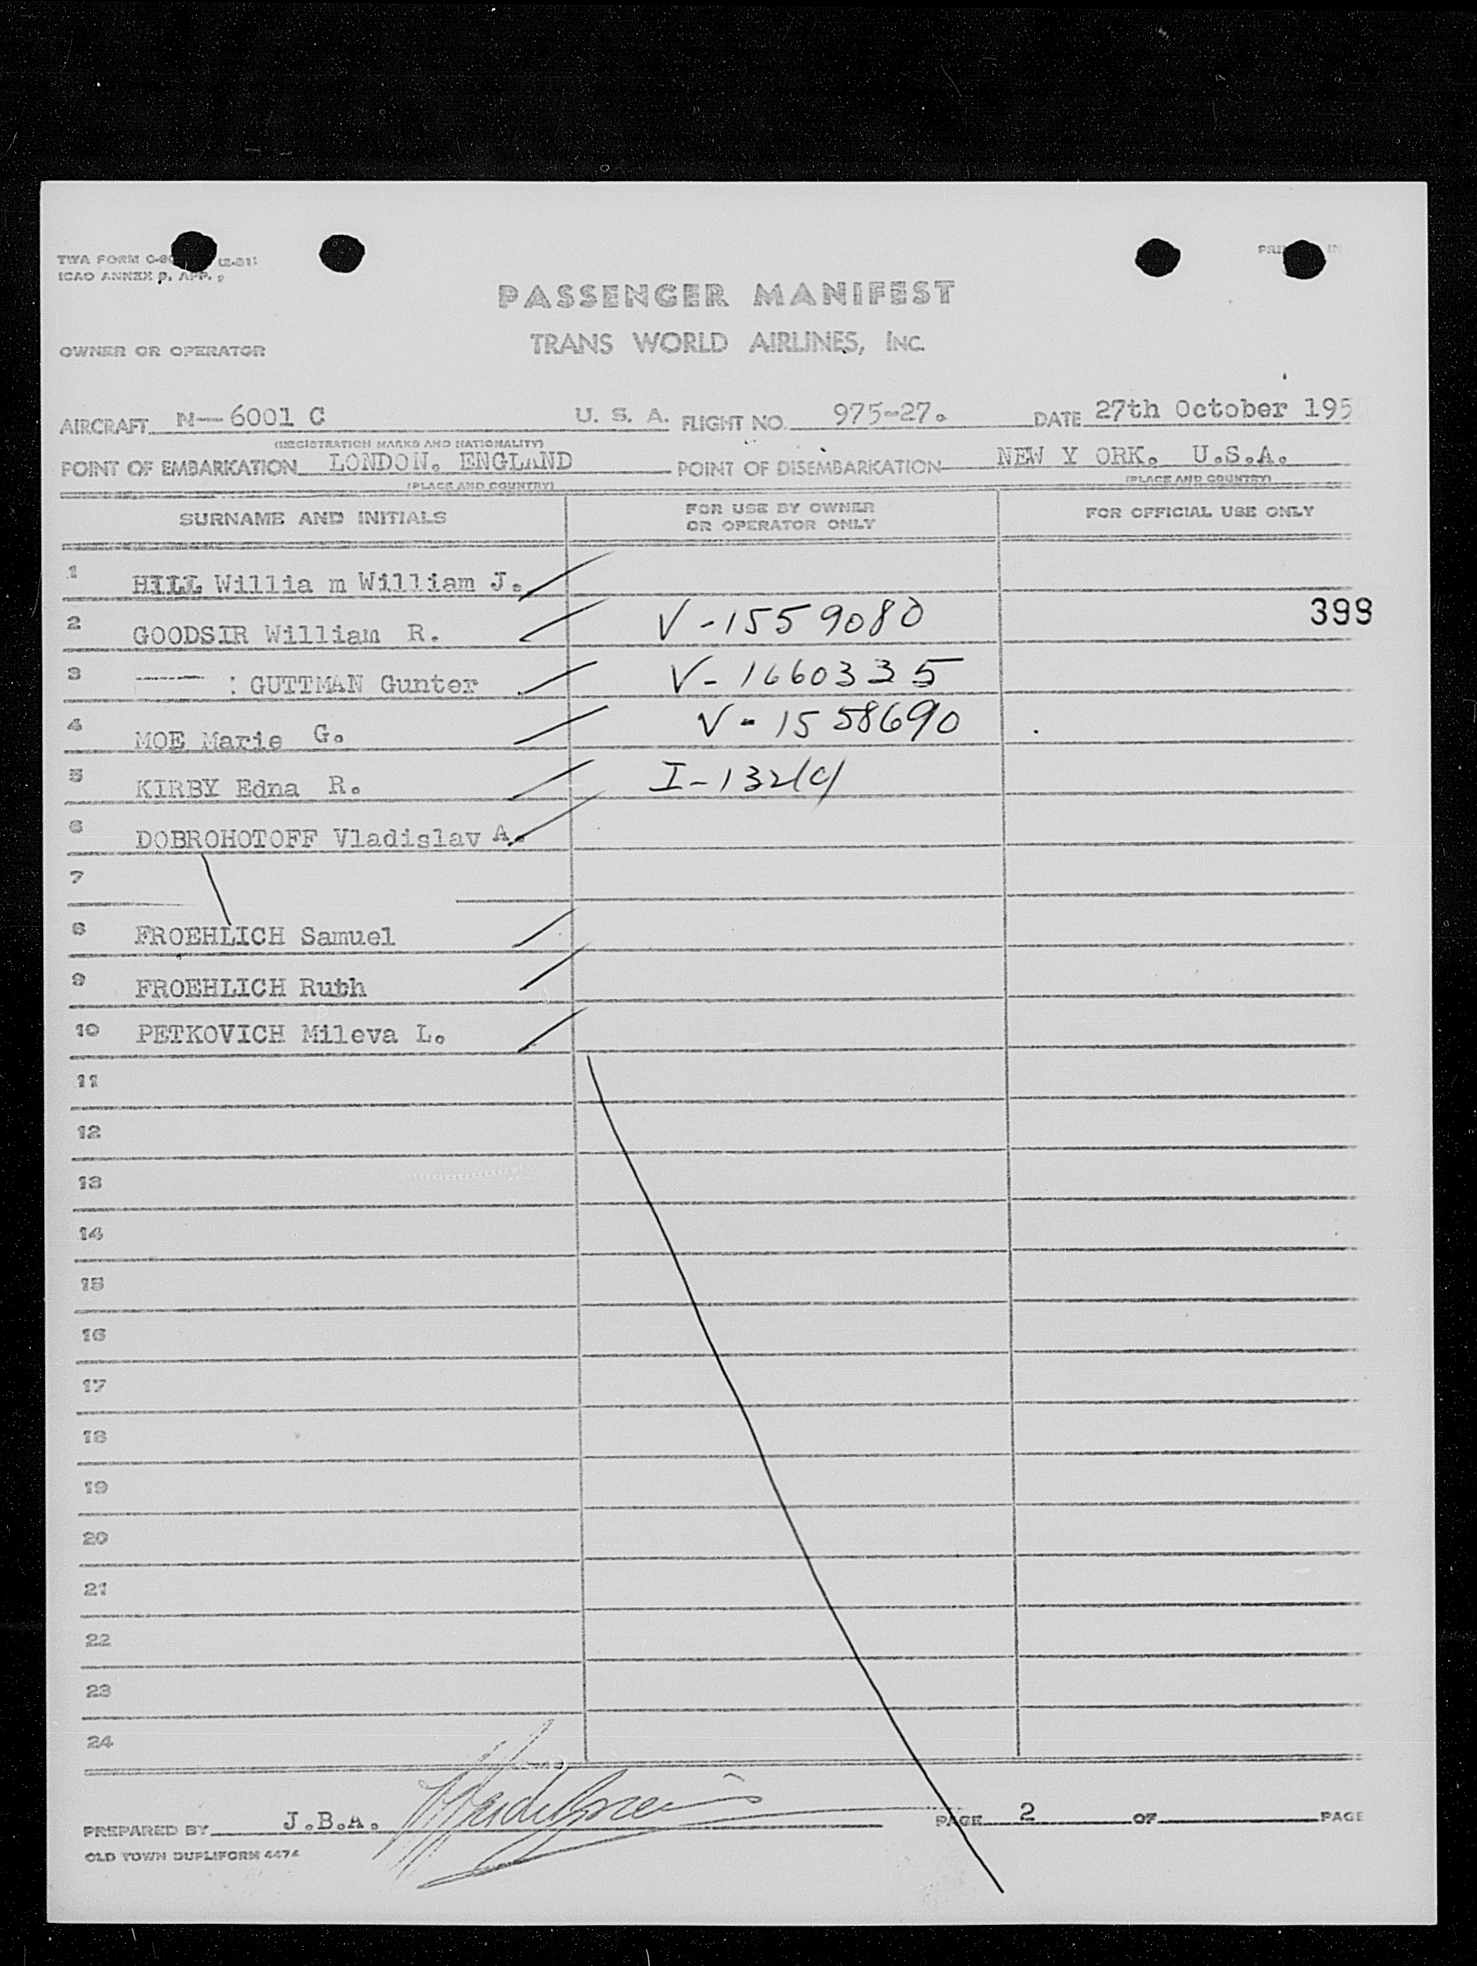 TWA FORM C-
ICAO ANNEX 9, APP.
PASSENGER MANIFEST
TRANS WORLD AIRLINES, INC.
OWNER OR OPERATOR
AIRCRAFT N--6001 C U. S. A. FLIGHT NO. 975-27. DATE 27th October 195
(REGISTRATION MARKS AND NATIONALITY)
POINT OF EMBARKATION LONDON. ENGLAND POINT OF DISEMBARKATION NEW Y ORK. U.S.A.
(PLACE AND COUNTRY) (PLACE AND COUNTRY)
SURNAME AND INITIALS FOR USE BY OWNER OR OPERATOR ONLY FOR OFFICIAL USE ONLY
1 HILL Willia m William J.
2 GOODSIR William R. V-1559080 399
3 ------ : GUTTMAN Gunter V-1660335
4 MOE Marie G. V-1558690
5 KIRBY Edna R.
6 DOBROHOTOFF Vladislav A.
7
8 FROEHLICH Samuel
9 FROEHLICH Ruth
10 PETKOVICH Mileva L.
11
12
13
14
15
16
17
18
19
20
21
22
23
24
PREPARED BY J.B.A. PAGE 2 OF PAGE
OLD TOWN DUPLIFORM 4474